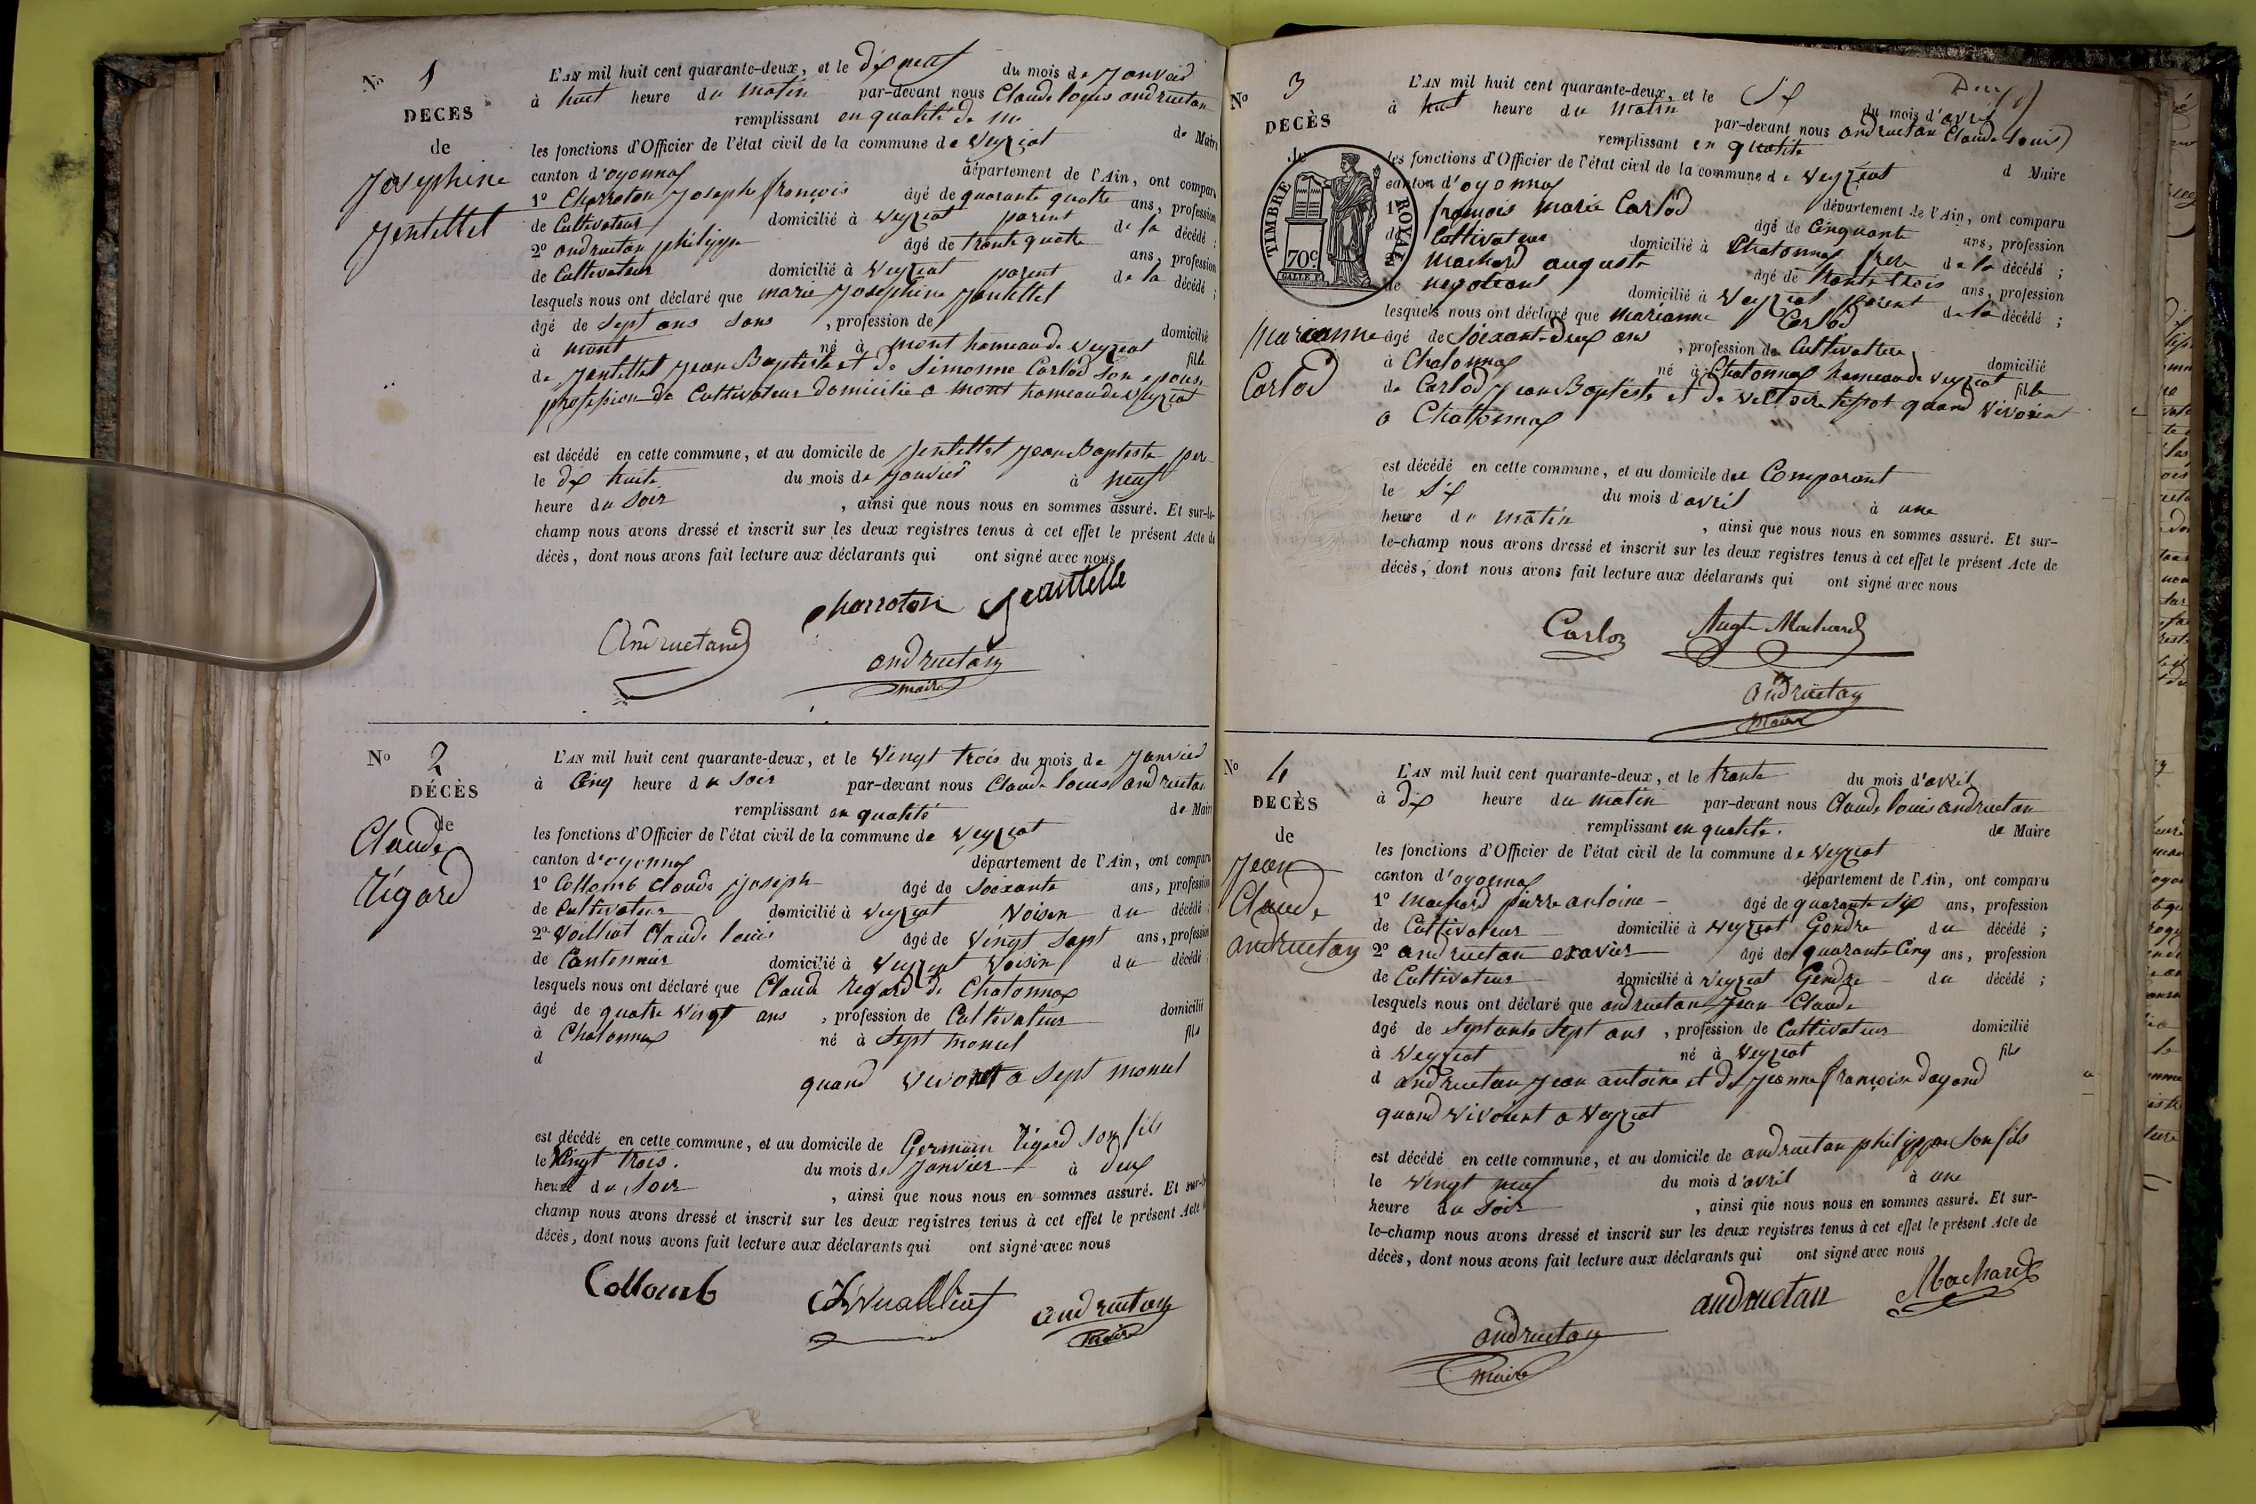 N° 1
DECES
de
Josephine
Jentellet
L'AN mil huit cent quarante-deux, et le dix neuf du mois de Janvier
à huit heure du matin par-devant nous Claude louis andruetan
remplissant en qualité de m.
de Maire
les fonctions d'Officier de l'état civil de la commune de Veyziat
canton d'oyonnax département de l'Ain, ont comparu
1° Charroton Joseph françois âgé de quarante quatre ans, profession
de Cultivateur domicilié à Veyziat parent de la décédé ;
2° andruetan philippe âgé de trente quatre ans, profession
de Cultivateur domicilié à Veyziat parent de la décédé ;
lesquels nous ont déclaré que marie Josephine Jentellet
âgé de Sept ans Sans , profession de domicilié
à mont né à mont hameau de Veyziat fille
de Jentellet Jean Baptiste et de Simonne Carlod Son epouse
profession de Cultivateur domicilié a mont hameau de Veyziat
est décédé en cette commune, et au domicile de Jentellet Jean Baptiste per
le dix huite du mois de Janvier à neuf
heure du Soir , ainsi que nous nous en sommes assuré. Et sur-le-
champ nous avons dressé et inscrit sur les deux registres tenus à cet effet le présent Acte de
décès, dont nous avons fait lecture aux déclarants qui ont signé avec nous
charroton Jeantelle
Andruetand
andruetan
maire
N° 2
DÉCÈS
de
Claude
Régard
L'AN mil huit cent quarante-deux, et le Vingt trois du mois de Janvier
à Cinq heure du Soir par-devant nous Claude louis andruetan
remplissant en qualité de Maire
les fonctions d'Officier de l'état civil de la commune de Veyziat
canton d'oyonnax département de l'Ain, ont comparu
1° Collomb Claude Joseph âgé de Soixante ans, profession
de Cultivateur domicilié à Veyziat Voisin du décédé ;
2° Voilliat Claude louis âgé de Vingt Sept ans, profession
de Cantonneur domicilié à Veyziat Voisin du décédé ;
lesquels nous ont déclaré que Claude Regard de Chatonnax
âgé de quatre Vingt ans , profession de Cultivateur domicilié
à Chatonnax né à Sept moncel fils
d
quand Vivoit a Sept moncel
est décédé en cette commune, et au domicile de Germain Régard Son fils
le Vingt trois. du mois de Janvier à deux
heure du Soir , ainsi que nous nous en sommes assuré. Et sur-le
champ nous avons dressé et inscrit sur les deux registres tenus à cet effet le présent Acte
décès, dont nous avons fait lecture aux déclarants qui ont signé avec nous
Collomb
andruetan
maire
N° 3
DECÈS
de
TIMBRE ROYAL
70c
Marianne
Carlod
Deux
L'AN mil huit cent quarante-deux, et le Six du mois d'avril
à huit heure du matin par-devant nous andruetan Claude louis
remplissant en qualité d Maire
les fonctions d'Officier de l'état civil de la commune de Veyziat
canton d'oyonnax département de l'Ain, ont comparu
1° françois marie Carlod âgé de Cinquante ans, profession
de Cultivateur domicilié à Chatonnax frere de la décédé ;
machard auguste âgé de trente trois ans, profession
de negotiant domicilié à Veyziat parent de la décédé ;
lesquels nous ont déclaré que Marianne Carlod
âgé de Soixante Deux ans , profession de Cultivatere domicilié
à Chatonnax né à Chatonnax hameau de Veyziat fille
de Carlod Jean Baptiste et de Victoire tissot quand Vivoient
a Chatonnax
est décédé en cette commune, et au domicile du Comparant
le Six du mois d'avril à une
heure du matin , ainsi que nous nous en sommes assuré. Et sur-
le-champ nous avons dressé et inscrit sur les deux registres tenus à cet effet le présent Acte de
décès, dont nous avons fait lecture aux déclarants qui ont signé avec nous
Carloz Augte Machard
andruetan
maire
N° 4
DECÈS
de
Jean
Claude
andruetan
L'AN mil huit cent quarante-deux, et le trente du mois d'avril
à dix heure du matin par-devant nous Claude louis andruetan
remplissant en qualité. de Maire
les fonctions d'Officier de l'état civil de la commune de Veyziat
canton d'oyonnax département de l'Ain, ont comparu
1° machard pierre antoine âgé de quarante Six ans, profession
de Cultivateur domicilié à Veyziat Gendre du décédé ;
2° andruetan exavier âgé de quarante Cinq ans, profession
de Cultivateur domicilié à Veyziat Gendre du décédé ;
lesquels nous ont déclaré que andruetan Jean Claude
âgé de Septante Sept ans , profession de Cultivateur domicilié
à Veyziat né à Veyziat fils
d andruetan Jean antoine et de Jeanne françoise dagond
quand Vivoient a Veyziat
est décédé en cette commune, et au domicile de andruetan philippe Son fils
le Vingt neuf du mois d'avril à une
heure du Soir , ainsi que nous nous en sommes assuré. Et sur-
le-champ nous avons dressé et inscrit sur les deux registres tenus à cet effet le présent Acte de
décès, dont nous avons fait lecture aux déclarants qui ont signé avec nous
andruetan Machard
andruetan
maire